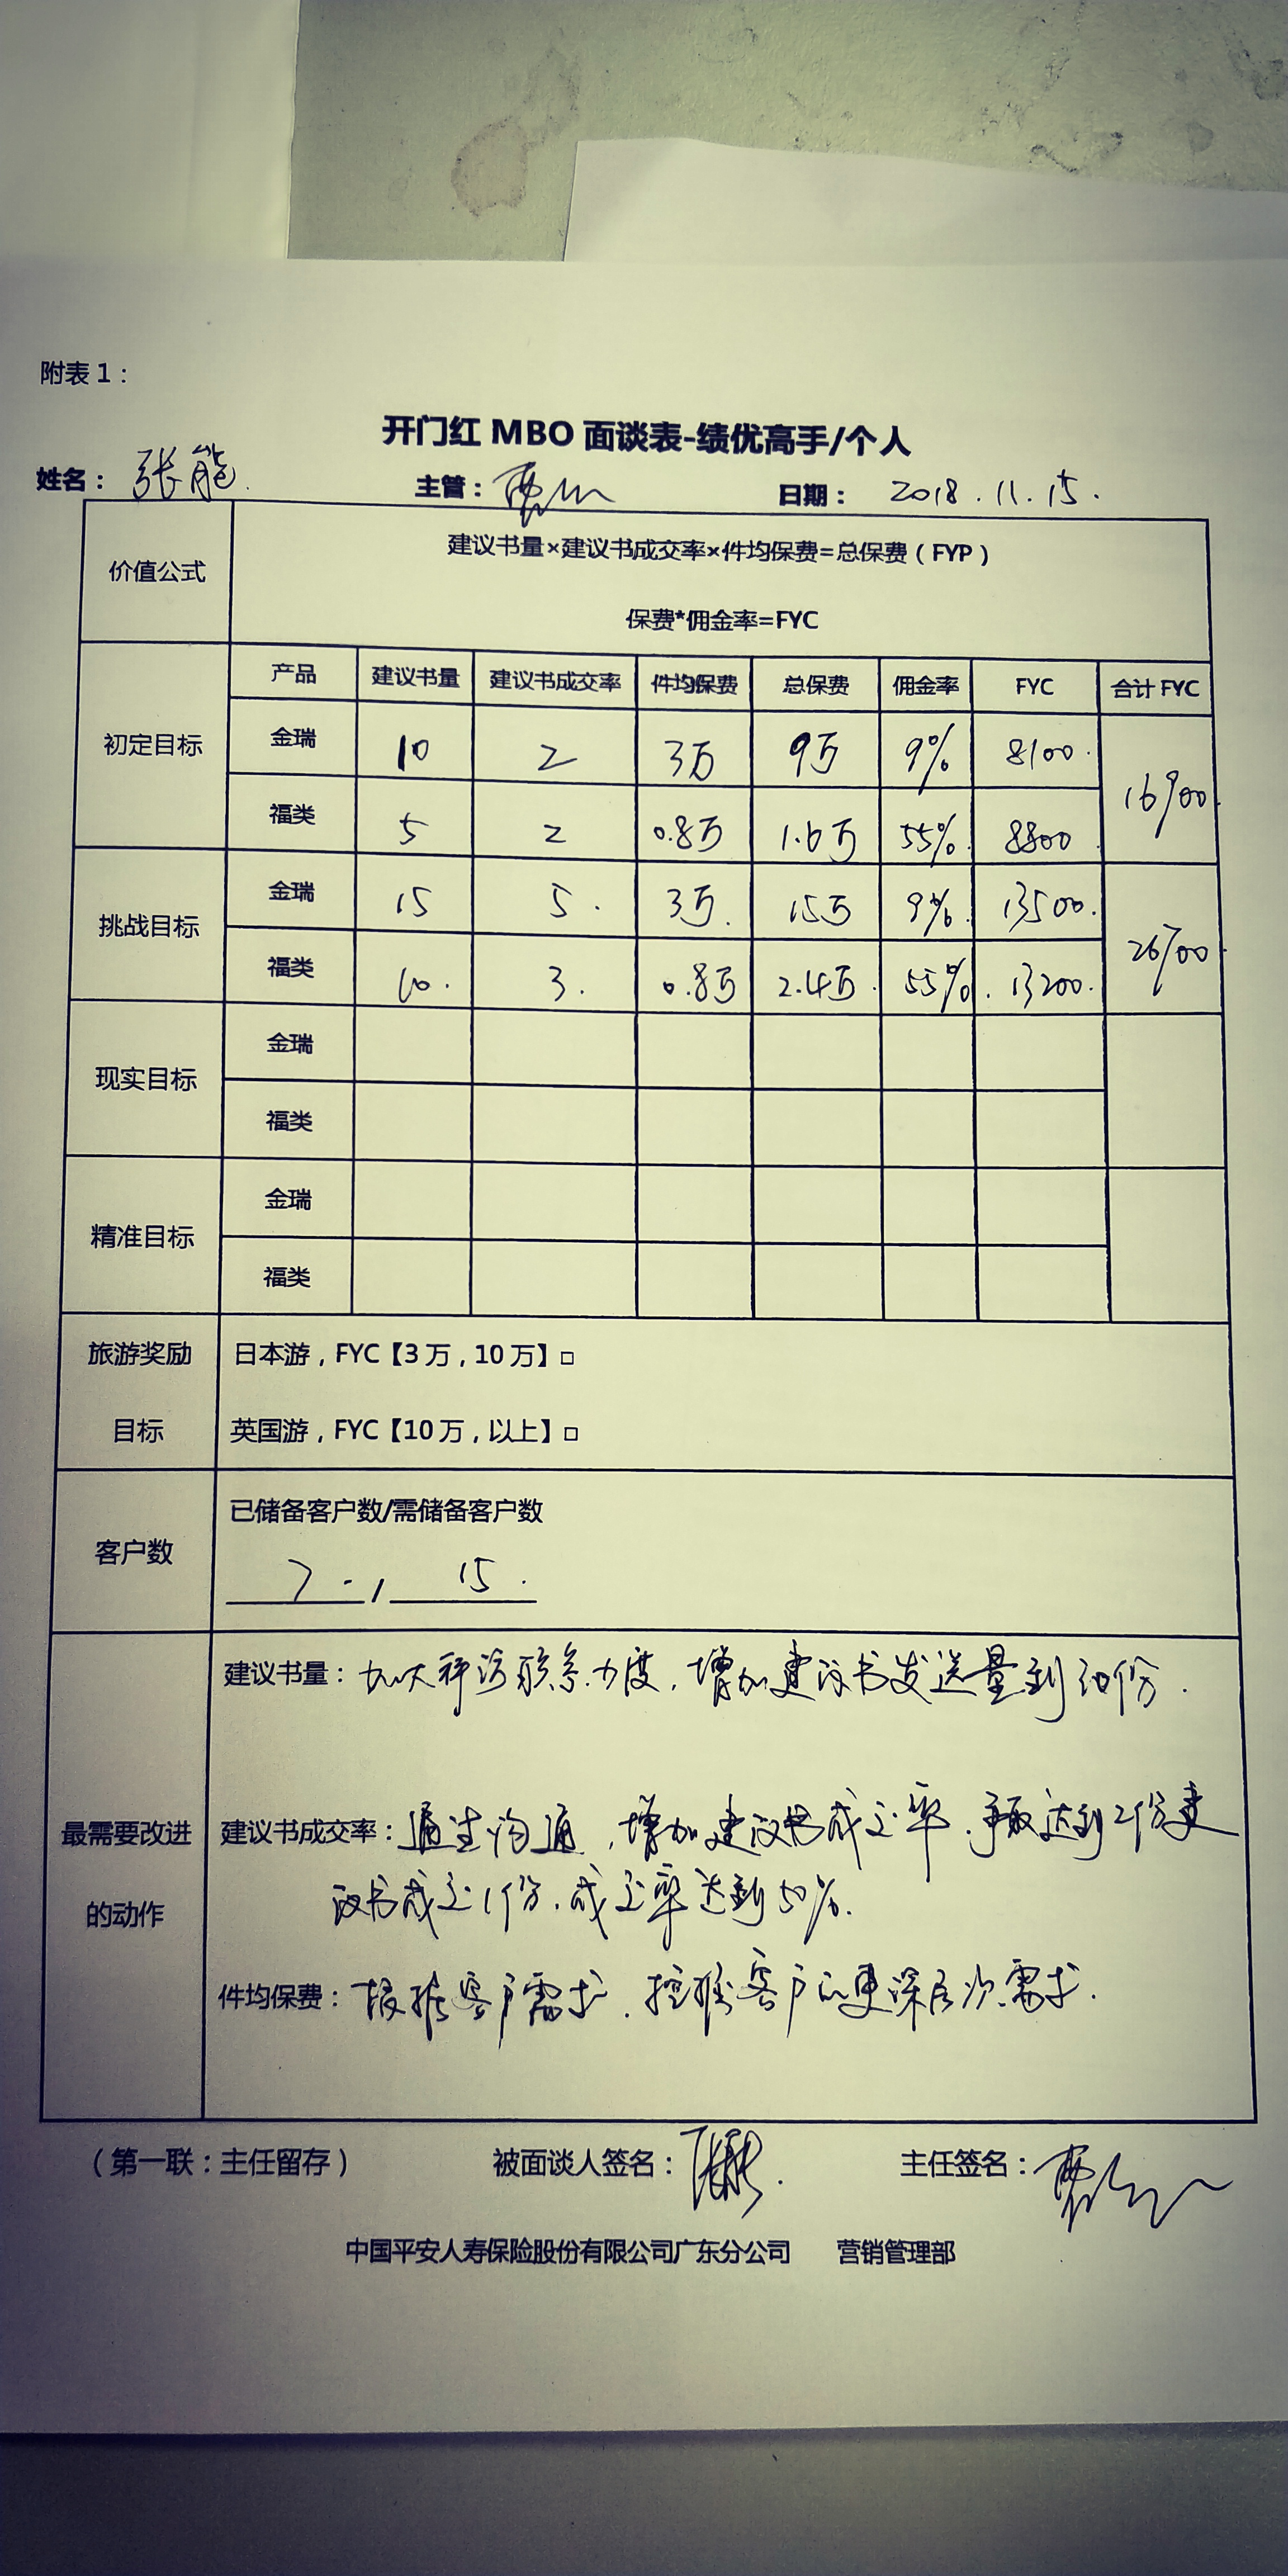 附表1：
开门红 MBO 面谈表-绩优高手/个人
姓名： 张能. 主管： 日期： 2018.11.15.
价值公式
建议书量×建议书成交率×件均保费=总保费（FYP）
保费*佣金率=FYC
产品 建议书量 建议书成交率 件均保费 总保费 佣金率 FYC 合计 FYC
初定目标
金瑞 10 2 3万 9万 9% 8100. 16900
福类 5 2 0.8万 1.6万 55% 8800
挑战目标
金瑞 15 5. 3万. 15万 9%. 13500. 26700
福类 10. 3. 0.8万 2.4万. 55%. 13200.
现实目标
金瑞
福类
精准目标
金瑞
福类
旅游奖励
目标
日本游，FYC【3万，10万】□
英国游，FYC【10万，以上】□
客户数
已储备客户数/需储备客户数
7 / 15.
最需要改进
的动作
建议书量：加大 联系力度，增加建议书发送量到 份.
建议书成交率： 沟通，增加建议书成交率，争取达到2份建
议书成交1份，成交率达到50%.
件均保费：根据客户需求，挖掘客户的更深层次需求.
（第一联：主任留存） 被面谈人签名： 主任签名：
中国平安人寿保险股份有限公司广东分公司 营销管理部